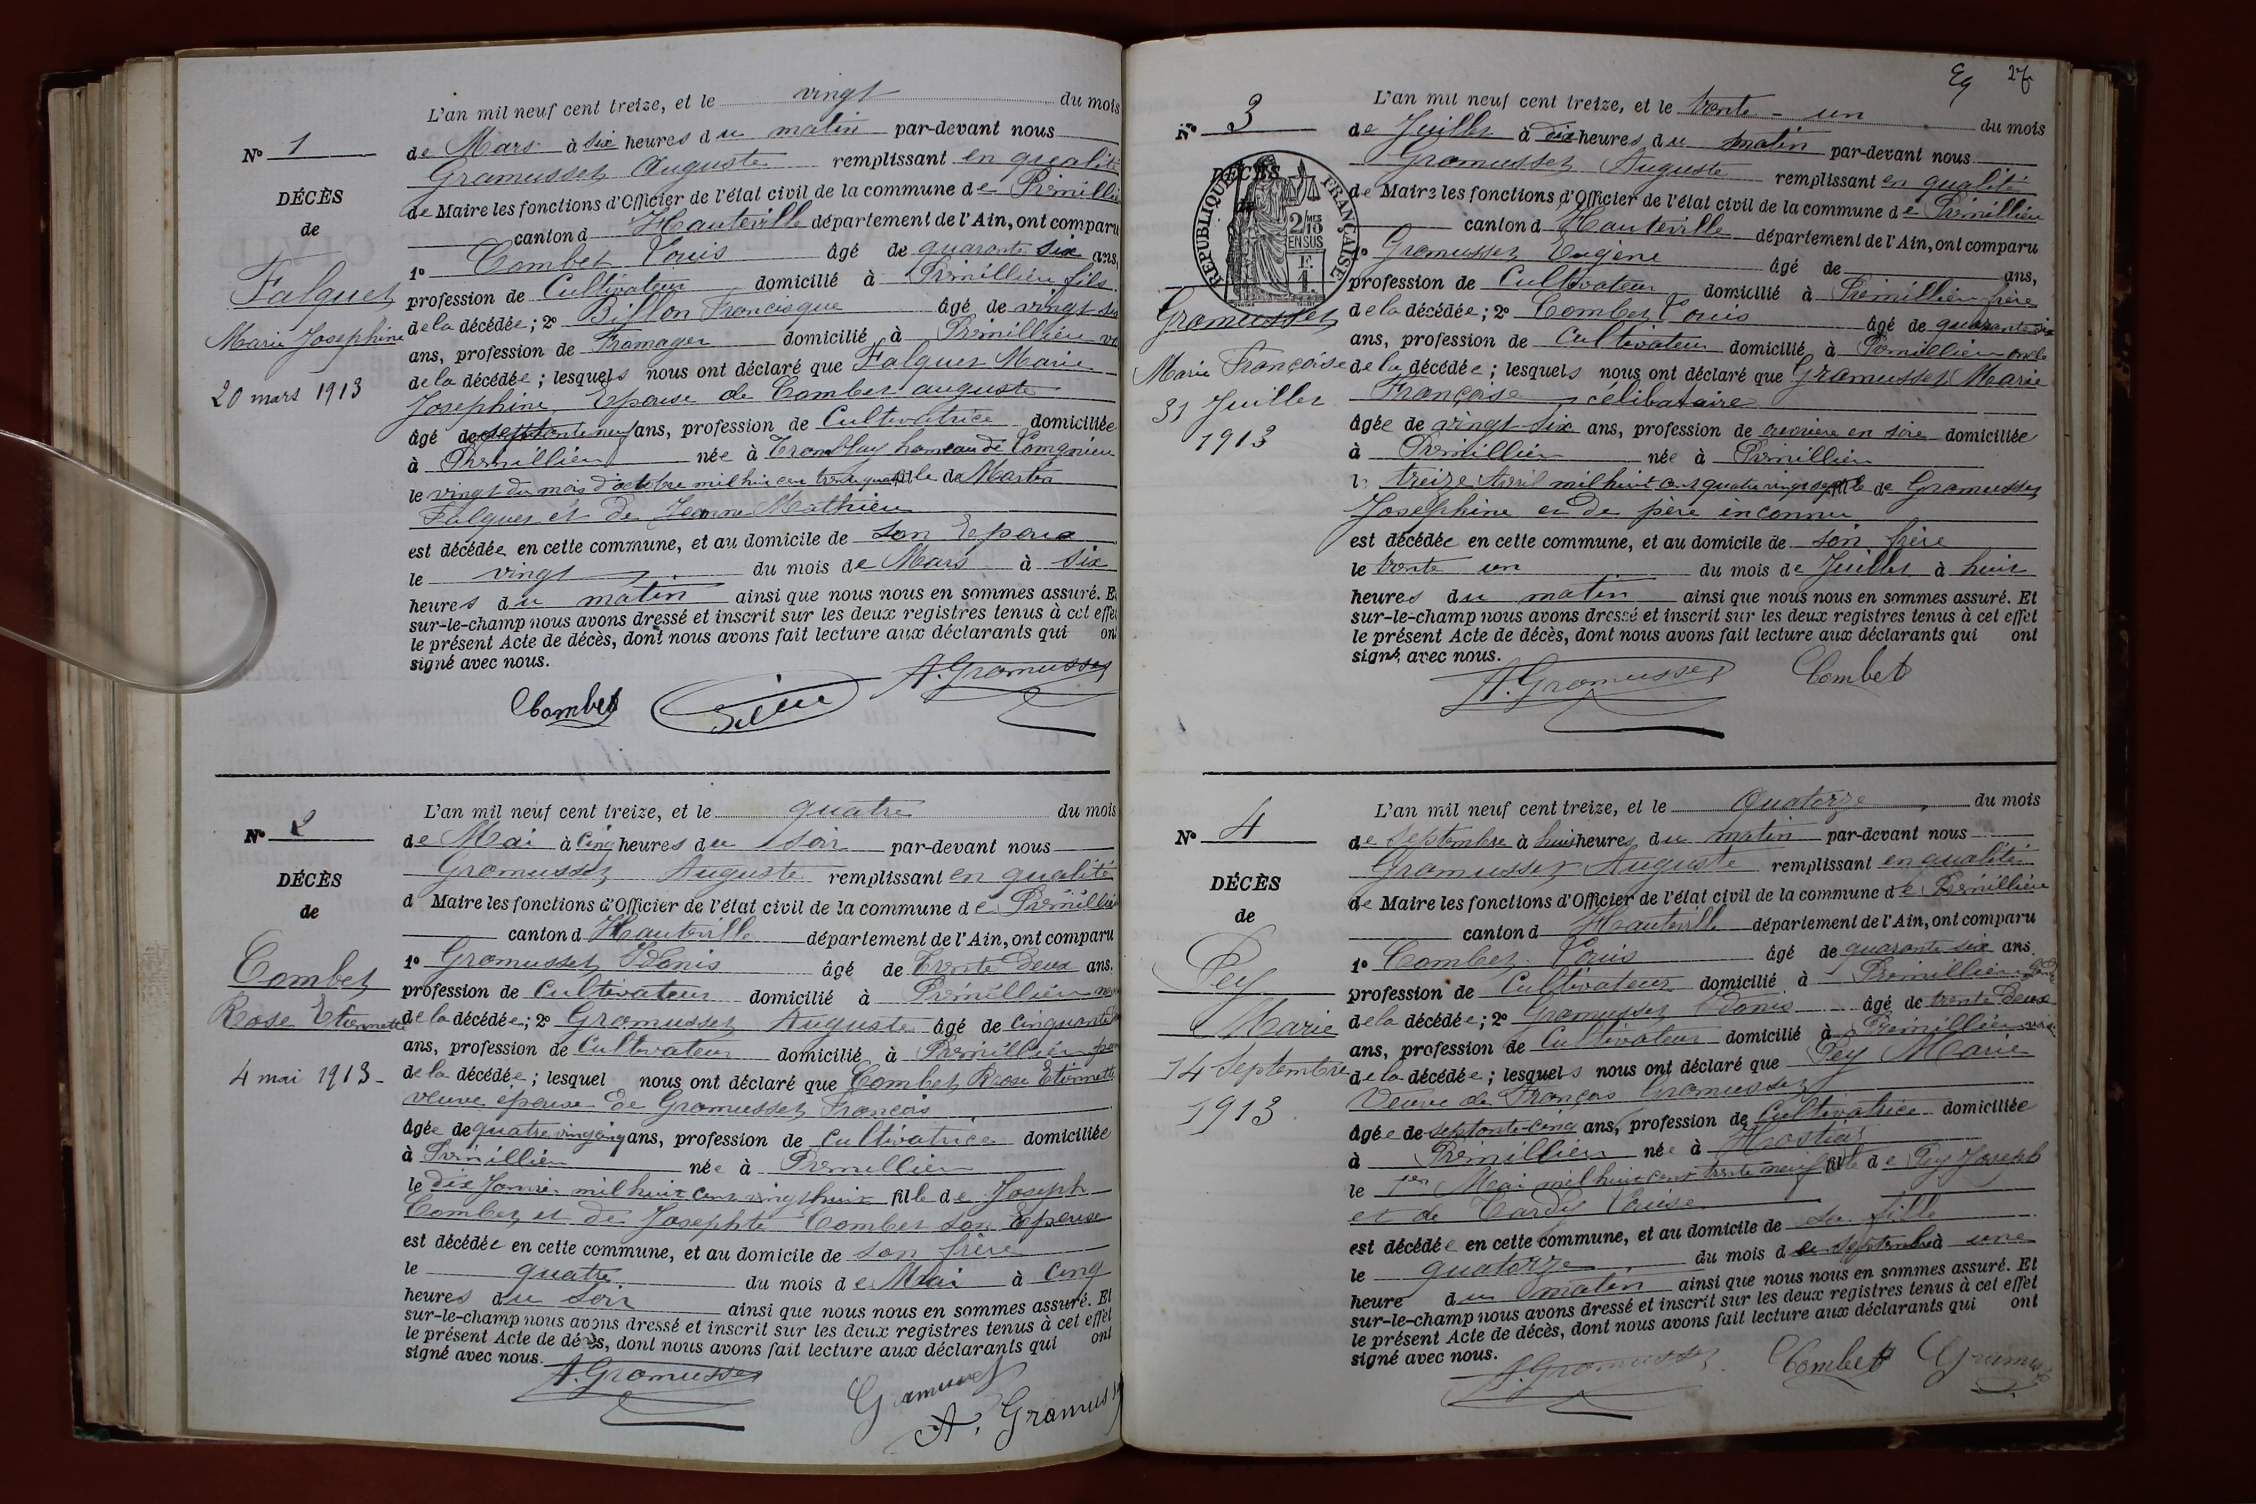 N° 1
DÉCÈS
de
Falquet
Marie Josephine
20 mars 1913
L'an mil neuf cent treize, et le vingt du mois
de Mars à six heures du matin par-devant nous
Gramusset Auguste remplissant en qualité
de Maire les fonctions d'Officier de l'état civil de la commune de Prémillieu
canton d Hauteville département de l'Ain, ont comparu
1° Combet Louis âgé de quarante six ans,
profession de Cultivateur domicilié à Prémillieu fils
de la décédée; 2° Billon Francisque âgé de vingt six
ans, profession de Fromager domicilié à Prémillieu
de la décédée; lesquels nous ont déclaré que Falquet Marie
Josephine Epouse de Combet auguste
âgé de septante neuf ans, profession de Cultivatrice domiciliée
à Prémillieu née à hameau de
le vingt du mois d'octobre mil huit cent trente quatre fille de Martin
Falquet et de Jeanne Mathieu
est décédée en cette commune, et au domicile de son Epoux
le vingt du mois de Mars à six
heures du matin ainsi que nous nous en sommes assuré. Et
sur-le-champ nous avons dressé et inscrit sur les deux registres tenus à cet effet
le présent Acte de décès, dont nous avons fait lecture aux déclarants qui ont
signé avec nous.
Combet A. Gramusset
N° 2
DÉCÈS
de
Combet
Rose Etiennette
4 mai 1913
L'an mil neuf cent treize, et le quatre du mois
de Mai à cinq heures du soir par-devant nous
Gramusset Auguste remplissant en qualité
d Maire les fonctions d'Officier de l'état civil de la commune de Prémillieu
canton d Hauteville département de l'Ain, ont comparu
1° Gramusset Adonis âgé de trente deux ans.
profession de Cultivateur domicilié à Prémillieu
de la décédée; 2° Gramusset Auguste âgé de cinquante
ans, profession de Cultivateur domicilié à Prémillieu
de la décédée; lesquel nous ont déclaré que Combet Rose Etiennette
veuve épouse de Gramusset François
âgée de quatre vingt cinq ans, profession de cultivatrice domiciliée
à Prémillieu née à Prémillieu
le dix Janvier mil huit cent vingt huit fille de Joseph
Combet et de Josephte Combet son Epouse
est décédée en cette commune, et au domicile de son frère
le quatre du mois de Mai à cinq
heures du soir ainsi que nous nous en sommes assuré. Et
sur-le-champ nous avons dressé et inscrit sur les deux registres tenus à cet effet
le présent Acte de décès, dont nous avons fait lecture aux déclarants qui ont
signé avec nous.
A. Gramusset Gramusset
A. Gramusset
27
N° 3
DÉCÈS
de
RÉPUBLIQUE FRANÇAISE
2/10 MES
EN SUS
F.
1.
Gramusset
Marie Françoise
31 Juillet
1913
L'an mil neuf cent treize, et le trente-un du mois
de Juillet à dix heures du matin par-devant nous
Gramusset Auguste remplissant en qualité
de Maire les fonctions d'Officier de l'état civil de la commune de Prémillieu
canton d Hauteville département de l'Ain, ont comparu
1° Gramusset Eugène âgé de ans,
profession de Cultivateur domicilié à Prémillieu frère
de la décédée; 2° Combet Louis âgé de quarante six
ans, profession de Cultivateur domicilié à Prémillieu oncle
de la décédée; lesquels nous ont déclaré que Gramusset Marie
Françoise célibataire
âgée de vingt-six ans, profession de ouvrière en soie domiciliée
à Prémillieu née à Prémillieu
le treize Avril mil huit cent quatre vingt sept fille de Gramusset
Josephine et de père inconnu
est décédée en cette commune, et au domicile de son frère
le trente un du mois de Juillet à huit
heures du matin ainsi que nous nous en sommes assuré. Et
sur-le-champ nous avons dressé et inscrit sur les deux registres tenus à cet effet
le présent Acte de décès, dont nous avons fait lecture aux déclarants qui ont
signé avec nous.
A. Gramusset Combet
N° 4
DÉCÈS
de
Pey
Marie
14 Septembre
1913.
L'an mil neuf cent treize, et le Quatorze du mois
de septembre à huit heures du matin par-devant nous
Gramusset Auguste remplissant en qualité
de Maire les fonctions d'Officier de l'état civil de la commune de Prémillieu
canton d Hauteville département de l'Ain, ont comparu
1° Combet Louis âgé de quarante six ans.
profession de Cultivateur domicilié à Prémillieu
de la décédée; 2° Gramusset Adonis âgé de trente deux
ans, profession de Cultivateur domicilié à Prémillieu
de la décédée; lesquels nous ont déclaré que Pey Marie
Veuve de François Gramusset
âgée de septante-cinq ans, profession de Cultivatrice domiciliée
à Prémillieu née à Hostias
le 1er Mai mil huit cent trente neuf fille de Pey Joseph
et de Tardy Louise
est décédée en cette commune, et au domicile de sa fille
le quatorze du mois de septembre à une
heure du matin ainsi que nous nous en sommes assuré. Et
sur-le-champ nous avons dressé et inscrit sur les deux registres tenus à cet effet
le présent Acte de décès, dont nous avons fait lecture aux déclarants qui ont
signé avec nous.
A. Gramusset Combet Gramusset